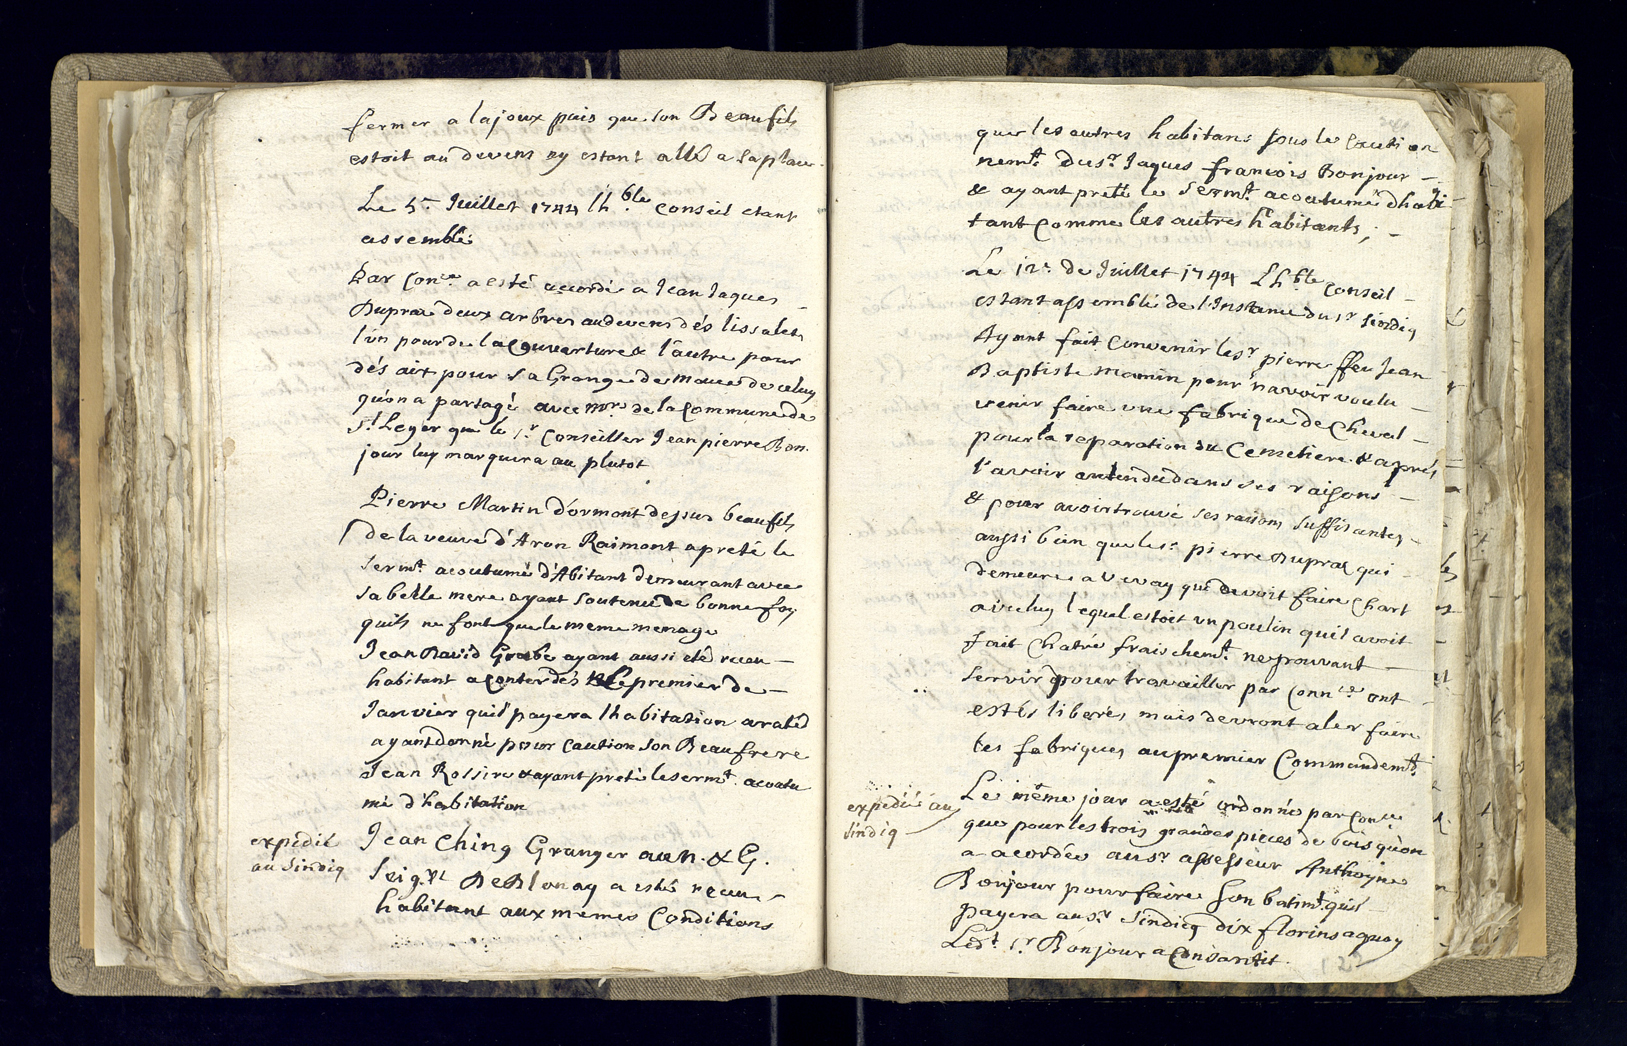 fermer a lajoux puis que son Beaufils
estoit au devens ny estant allé a sa place
Le 5e Juillet 1744 lhble conseil etant
assemblé
Par Conce a esté acordé a Jean Jaques
Dupraz deux arbres au devens dés lissalets
l'un pour de la Couverture & l'autre pour
dés aix pour sa Grange de de celuy
qu'on a partagé avec mrs de la Commune de
St Leger que le sr Conseiller Jean pierre Bon
jour luy marquera au plutot
Pierre Martin d'ormont dessus beaufils
de la veuve d'Aron Raimont a preté le
sermt acoutumé d'Abitant demeurant avec
sa belle mere ayant soutenu de bonne foy
quils ne font que le meme menage
Jean David Grebe ayant aussi eté receu
habitant a Conter dés le premier de
Janvier quil payera lhabitation a raté
ayant donné pour Caution son Beaufrere
Jean Rossire & ayant preté le sermt acoutu
mé d'habitation
expedié
au Sindiq
Jean Ching Granger au n. & G.
Seigr De Blonay a esté receu
habitant aux memes Conditions
que les autres habitans sous le Caution
nemt du sr Jaques francois Bonjour
& ayant preté le sermt acoutumé dhabi
tant Comme les autres habitants;
Le 12e de Juillet 1744 Lhble Conseil
estant assemblé de l'Instance du sr Sindiq
Ayant fait Convenir le sr pierre ffeu Jean
Baptiste mamin pour n'avoir voulu
venir faire une fabrique de Cheval
pour la reparation du Cemetiere & aprés
l'avoir entendu dans ses raisons
& pour avoir trouvé ses raisons suffisantes
aussi bien que le sr pierre Dupraz qui
demeure a Vevay qui devoit faire Chart
avec luy lequel estoit un poulin quil avoit
fait Chatré fraischemt ne pouvant
servir pour travailler par Connce ont
estés liberés mais devront aler faire
les fabriques au premier Commandemt
expedié au
Sindiq
Le même jour a esté ordonné par Conce
que pour les trois grandes pieces de bois qu'on
a acordée au sr assesseur Anthoyne
Bonjour pour faire son batimt quil
payera au sr Sindiq dix florins a quoy
Ledt sr Bonjour a Consantit.
122